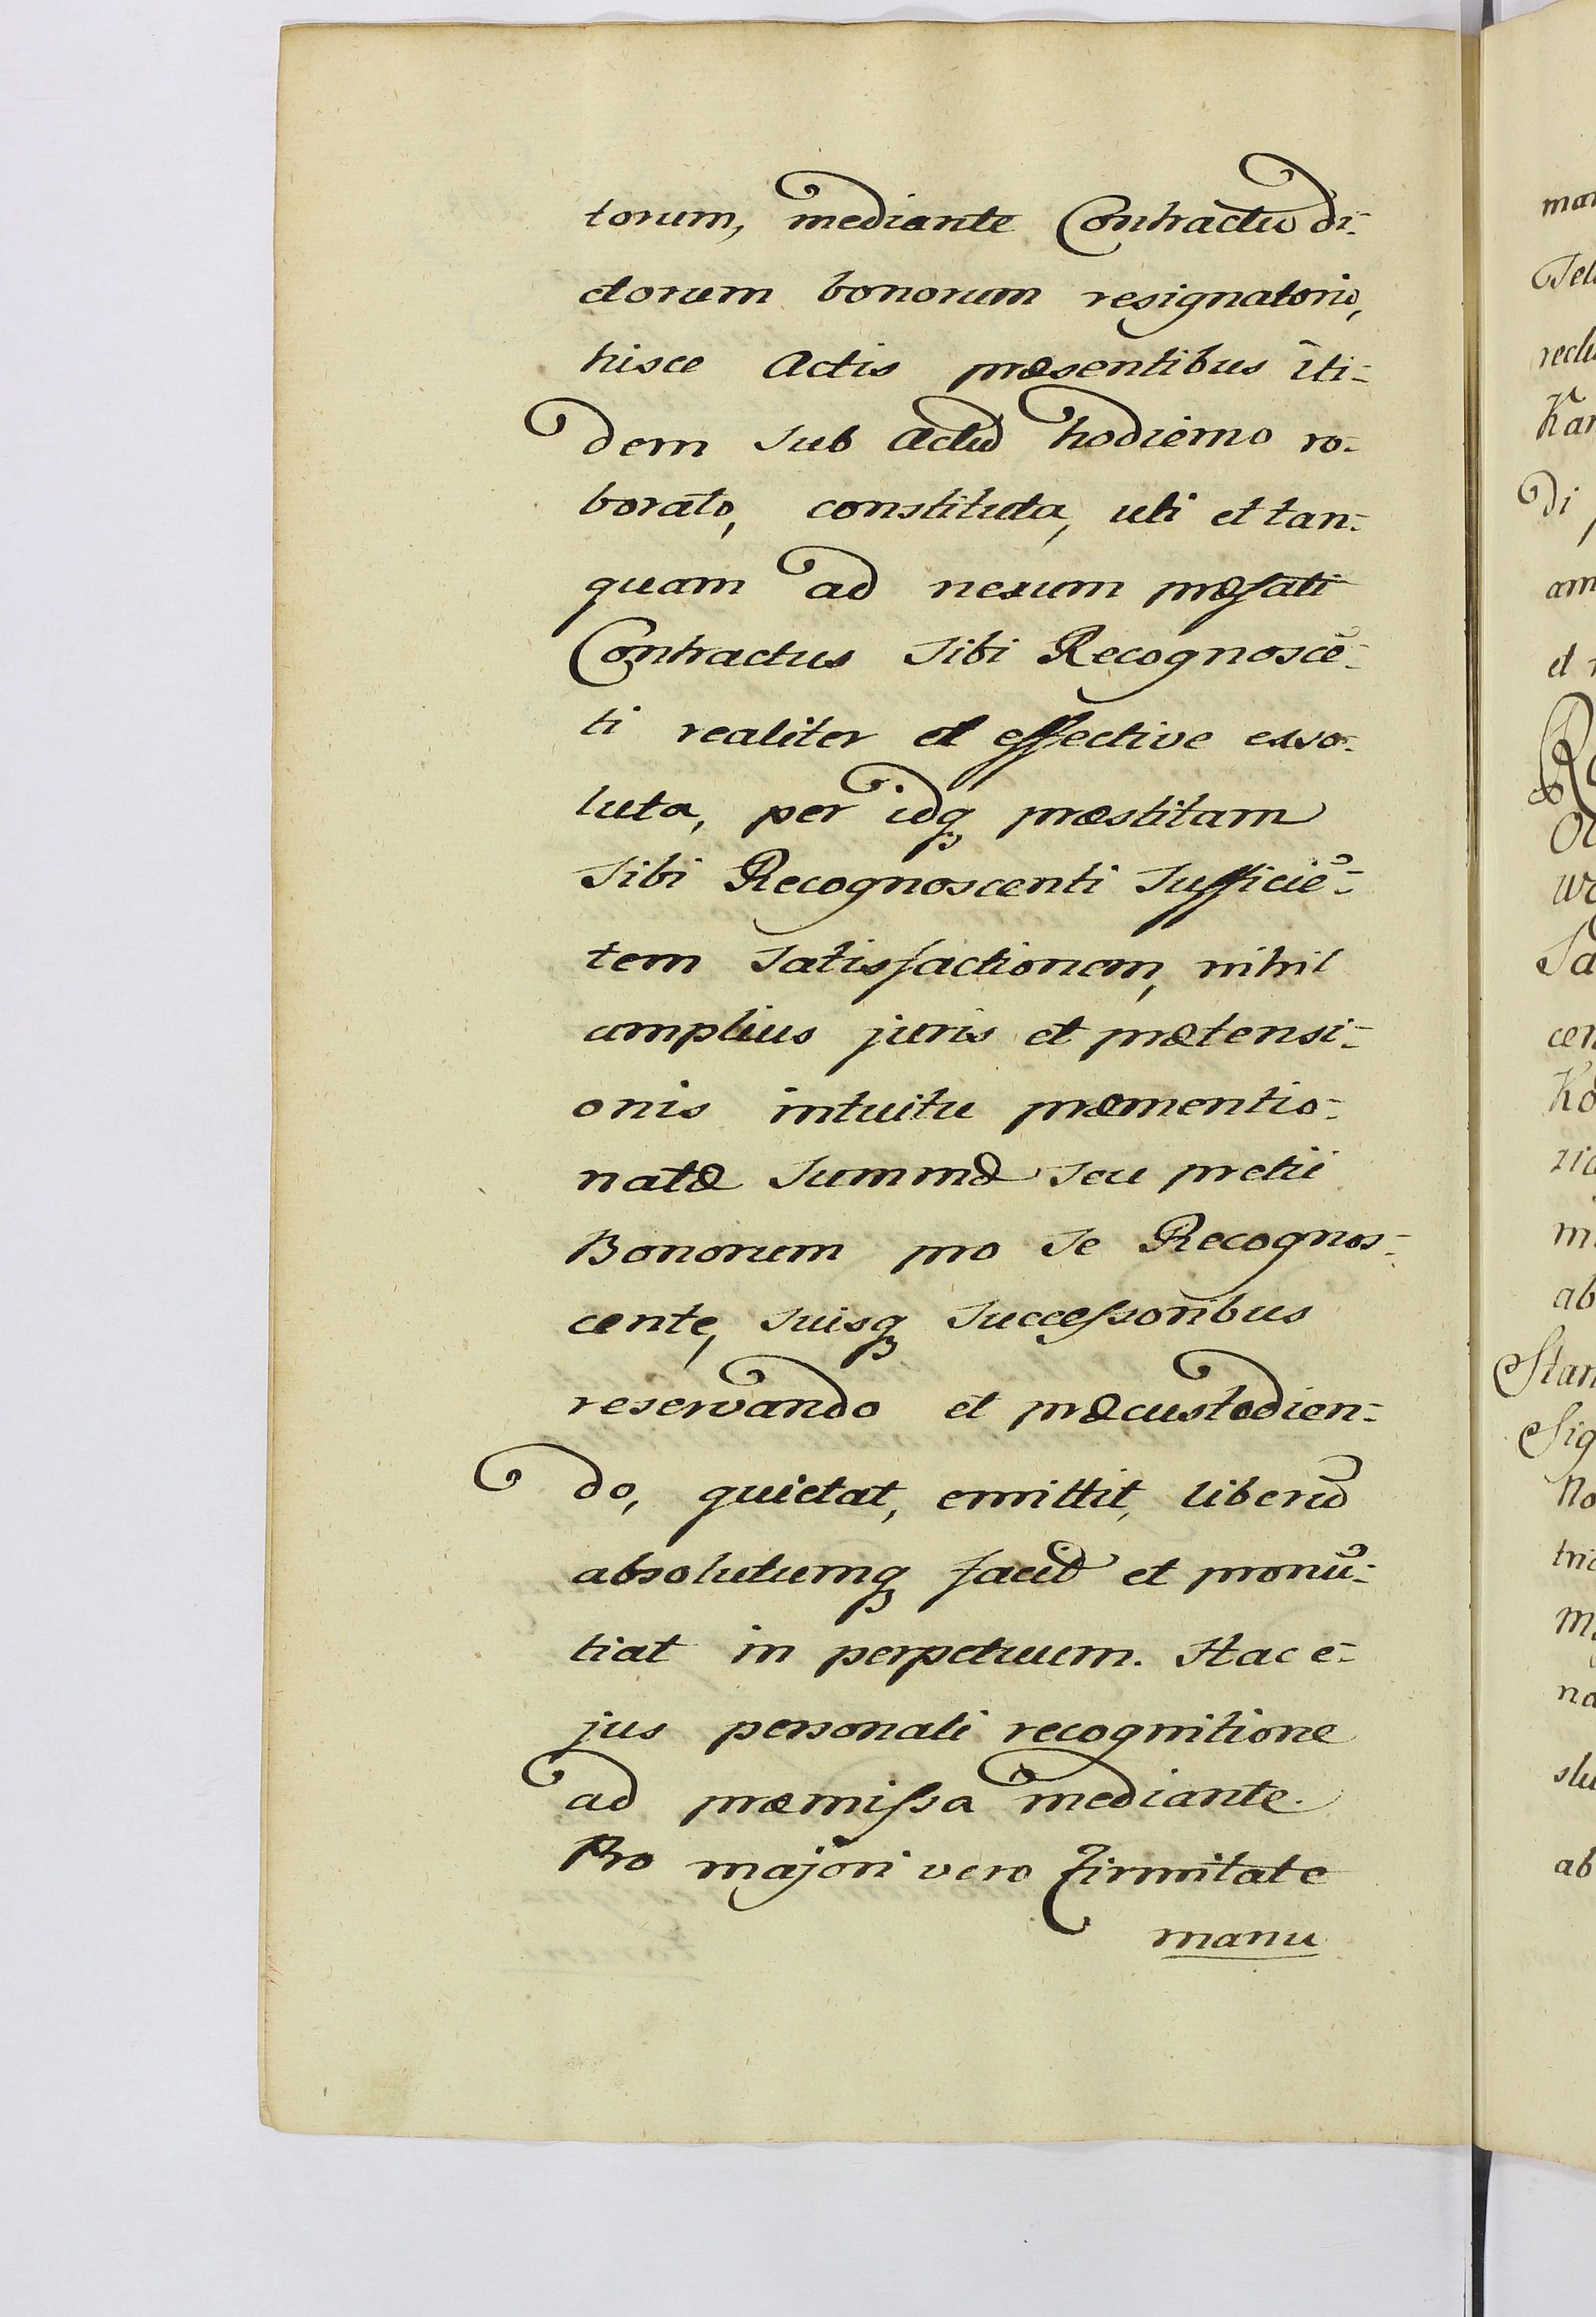 torum, mediante Contractu di-
ctorum bonorum resignatorio,
hisce Actis præsentibus iti-
dem sub Actu hodierno ro-
borato, constituta, uti et tan-
quam ad nexum præfati
Contractus sibi Recognoscē-
ti realiter et effective exso-
luta, per idq3 præstitam
sibi Recognoscenti sufficiē-
tem satisfactionem, nihil
amplius juris et prætensi-
onis intuitu præmentio-
natæ summæ seu pretii
Bonorum pro se Recognos-
cente, suisq3 successoribus
reservando et præcustodien-
do, quietat, emittit, liberū
absolutumq3 facit et pronū-
tiat in perpetuum. Hac e-
jus personali recognitione
ad præmissa mediante.
Pro majori vero Firmitate
manu